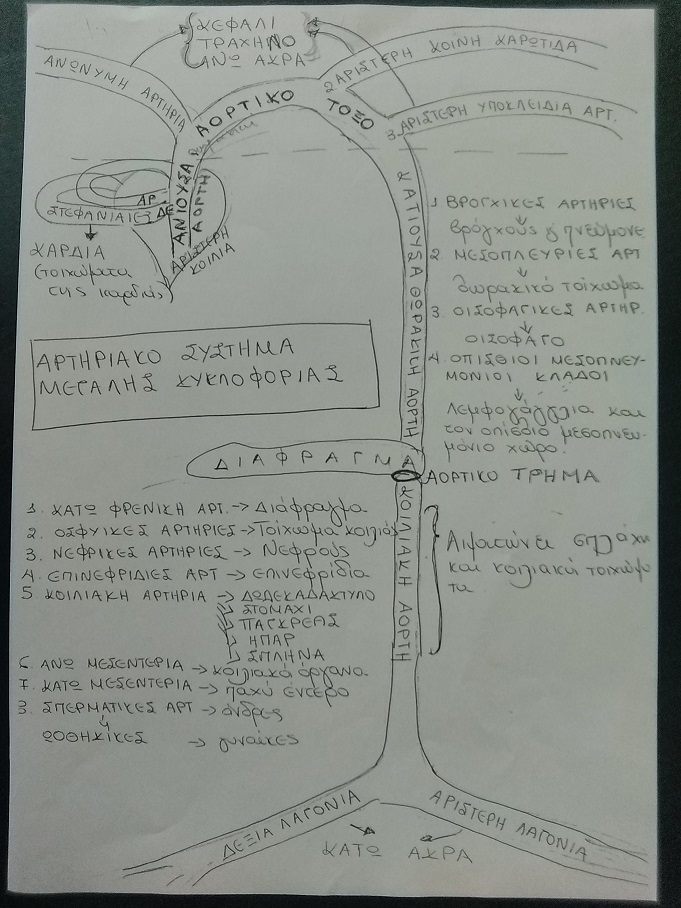 ΚΕΦΑΛΙ
ΤΡΑΧΗΛΟ
ΑΝΩ ΑΚΡΑ
ΑΝΩΝΥΜΗ ΑΡΤΗΡΙΑ
ΑΟΡΤΙΚΟ ΤΟΞΟ
2 ΑΡΙΣΤΕΡΗ ΚΟΙΝΗ ΚΑΡΩΤΙΔΑ
3. ΑΡΙΣΤΕΡΗ ΥΠΟΚΛΕΙΔΙΑ ΑΡΤ.
ΑΝΙΟΥΣΑ
ΑΟΡΤΗ
ΑΡ.
ΣΤΕΦΑΝΙΑΙΕΣ ΔΕ
ΑΡΙΣΤΕΡΗ
ΚΟΙΛΙΑ
ΚΑΡΔΙΑ
(τοιχώματα
της καρδιάς)
ΚΑΤΙΟΥΣΑ ΘΩΡΑΚΙΚΗ ΑΟΡΤΗ
1 ΒΡΟΓΧΙΚΕΣ ΑΡΤΗΡΙΕΣ
βρόγχους & πνεύμονε
2 ΜΕΣΟΠΛΕΥΡΙΕΣ ΑΡΤ
θωρακικό τοίχωμα
3. ΟΙΣΟΦΑΓΙΚΕΣ ΑΡΤΗΡ.
ΟΙΣΟΦΑΓΟ
4. ΟΠΙΣΘΙΟΙ ΜΕΣΟΠΝΕΥ-
ΜΟΝΙΟΙ ΚΛΑΔΟΙ
Λεμφογάγγλια και
τον οπίσθιο μεσοπνευ-
μόνιο χώρο.
ΑΡΤΗΡΙΑΚΟ ΣΥΣΤΗΜΑ
ΜΕΓΑΛΗΣ ΚΥΚΛΟΦΟΡΙΑΣ
ΔΙΑΦΡΑΓΜΑ
ΑΟΡΤΙΚΟ ΤΡΗΜΑ
ΚΟΙΛΙΑΚΗ ΑΟΡΤΗ
1. ΚΑΤΩ ΦΡΕΝΙΚΗ ΑΡΤ. → Διάφραγμα
2. ΟΣΦΥΙΚΕΣ ΑΡΤΗΡΙΕΣ → Τοίχωμα κοιλιάς
3. ΝΕΦΡΙΚΕΣ ΑΡΤΗΡΙΕΣ → Νεφρούς
4. ΕΠΙΝΕΦΡΙΔΙΕΣ ΑΡΤ → Επινεφρίδια
5 ΚΟΙΛΙΑΚΗ ΑΡΤΗΡΙΑ → ΔΩΔΕΚΑΔΑΚΤΥΛΟ
ΣΤΟΜΑΧΙ
ΠΑΓΚΡΕΑΣ
ΗΠΑΡ
ΣΠΛΗΝΑ
6. ΑΝΩ ΜΕΣΕΝΤΕΡΙΑ → κοιλιακά όργανα
7. ΚΑΤΩ ΜΕΣΕΝΤΕΡΙΑ → παχύ έντερο
8. ΣΠΕΡΜΑΤΙΚΕΣ ΑΡΤ → άνδρες
ή
ΩΟΘΗΚΙΚΕΣ → γυναίκες
Αιματώνει σπλάχν
και κοιλιακά τοιχώμα
τα
ΔΕΞΙΑ ΛΑΓΟΝΙΑ
ΑΡΙΣΤΕΡΗ ΛΑΓΟΝΙΑ
ΚΑΤΩ ΑΚΡΑ